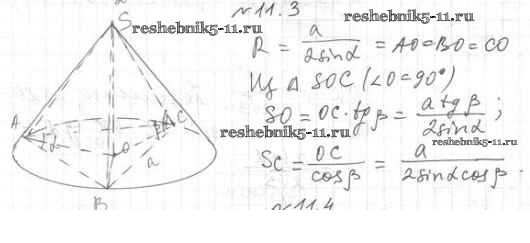 №11.3
S
reshebnik5-11.ru
reshebnik5-11.ru
R = a / 2sinα = AO = BO = CO
Из Δ SOC (∠O = 90°)
SO = OC · tg β = a tg β / 2sinα ;
reshebnik5-11.ru
SC = OC / cos β = a / 2sinα cos β .
reshebnik5-11.ru
A
C
α
β
O
a
B
№11.4